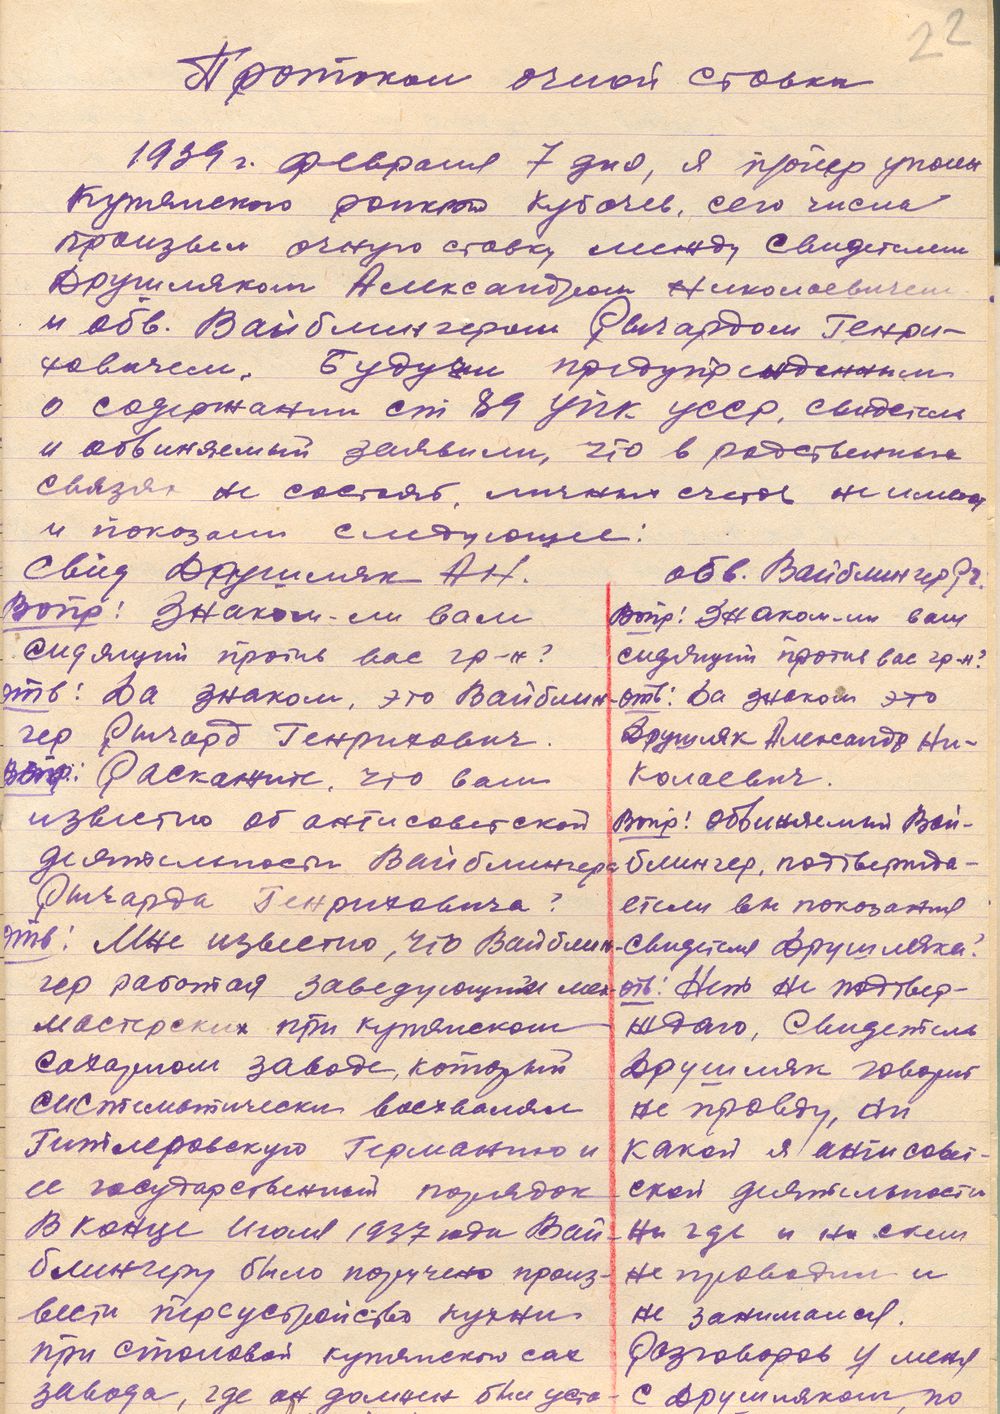 22
Протокол очной ставки
1939 г. февраля 7 дня, я
Купянского Кубочев, сего числа
произвел очную ставку между свидетелем
Друшляком Александром Николаевичем
и обв. Вайблингером Рычардом Генри-
ховичем. Будучи предупрежденным
о содержании ст 89 УПК УССР, свидетель
и обвиняемый заявили, что в родственных
связях не состоят, личных счетов не имеют
и показали следующее:
Свид Друшляк АН.
Вопр: Знаком-ли вам
сидящий против вас гр-н?
Отв: Да знаком, это Вайблин-
гер Рычард Генрихович.
Вопр: Раскажите, что вам
известно об антисоветской
деятельности Вайблингера
Рычарда Генриховича?
Отв: Мне известно, что Вайблин-
гер работая заведующим мех
мастерских при купянском
сахарном заводе, который
систематически восхвалял
Гитлеровскую Германию и
ее государственный порядок
В конце Июля 1937 года Вай-
блингеру было поручено произ-
вести переустройство кухни
при столовой купянского сах
завода, где он должен был уста-
обв. Вайблингер Рг.
Вопр: Знаком-ли вам
сидящий против вас гр-н?
Отв: Да знаком это
Друшляк Александр Ни-
колаевич.
Вопр: Обвиняемый Вай-
блингер, подтвержда-
етели вы показания
свидетеля Друшляка?
Отв: Нет не подтвер-
ждаю, Свидетель
Друшляк говорит
не правду, ни
какой я антисовет-
ской деятельности
ни где и ни скем
не проводил и
не занимался.
Разговоров у меня
с Друшляком, по